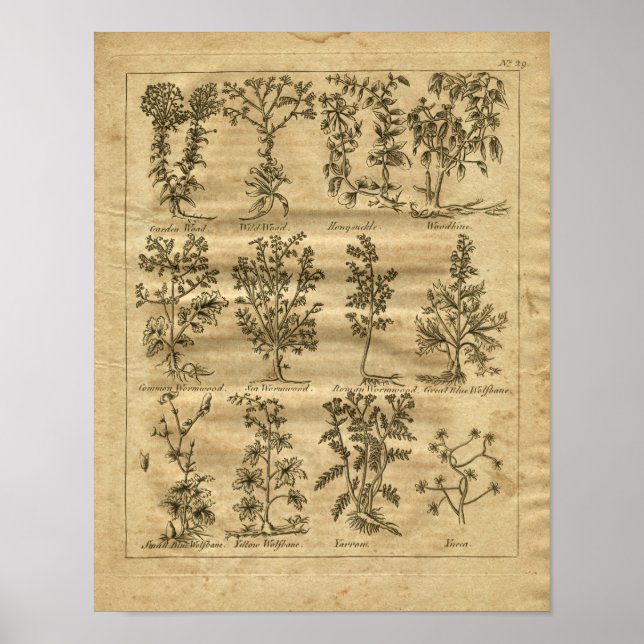 No. 29.
Garden Woad. Wild Woad. Honysuckle. Woodbine.
Common Wormwood. Sea Wormwood. Roman Wormwood. Great Blue Wolfbane.
Small Blue Wolfbane. Yellow Wolfbane. Yarrow. Yucca.